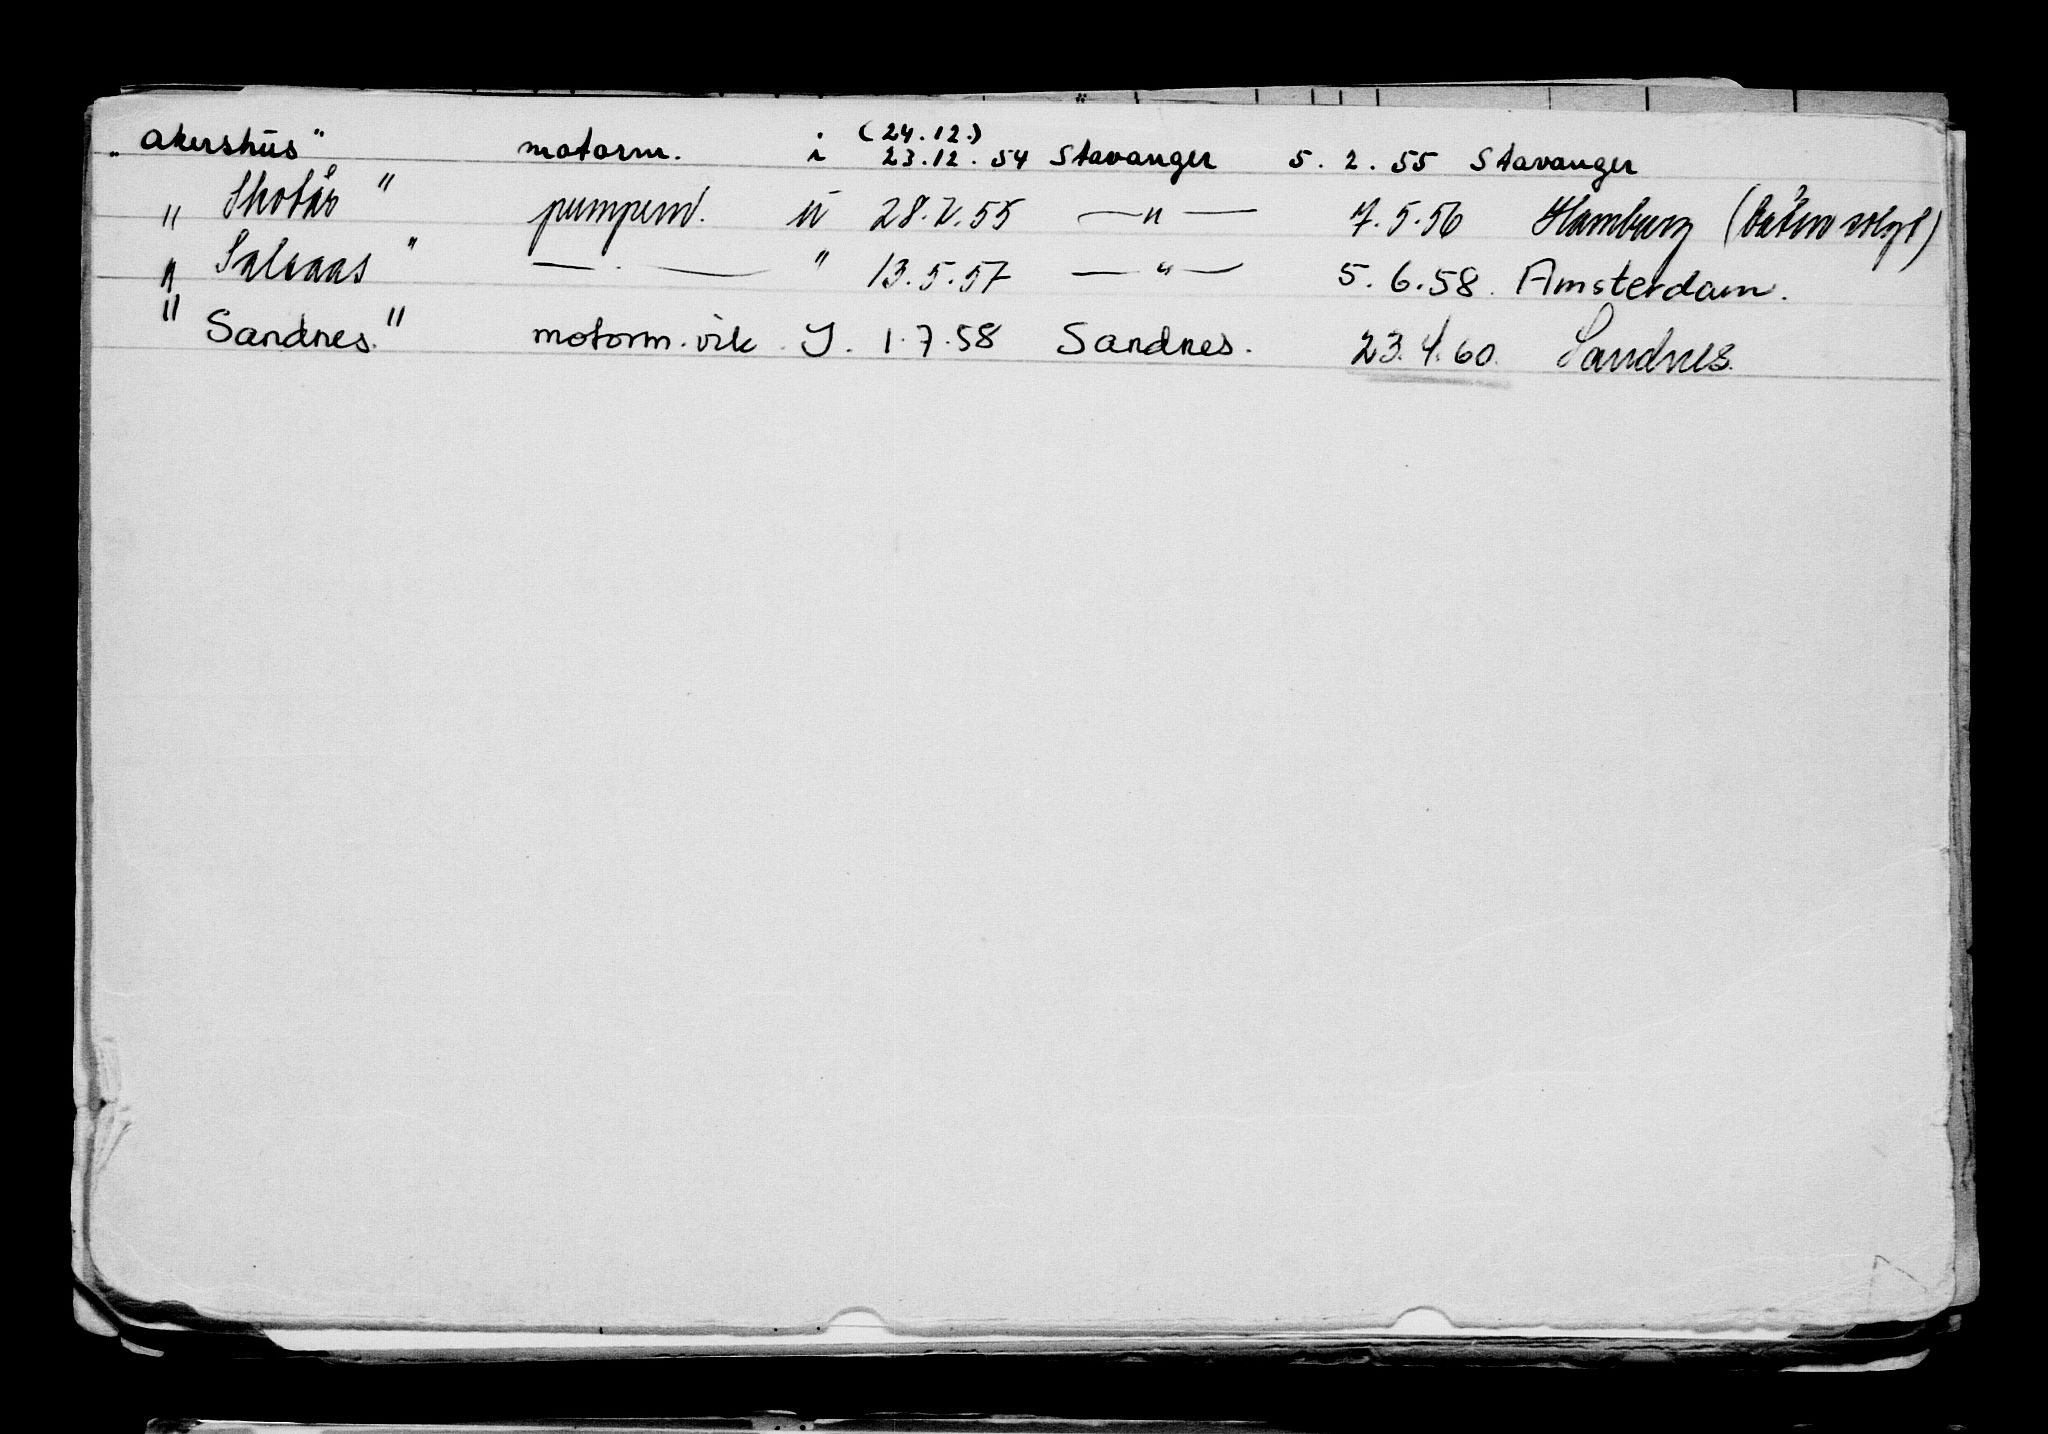 (24.12.)
„Akershus" motorm. i 23.12.54 Stavanger 5.2.55 Stavanger
" Skotår " pumpem. u 28.2.55 — " — 7.5.56 Hamburg (båten solgt)
" Salsaas " — . — " 13.5.57 — " — 5.6.58. Amsterdam.
" Sandnes." motorm. vik. I. 1.7.58 Sandnes. 23.4.60. Sandnes.